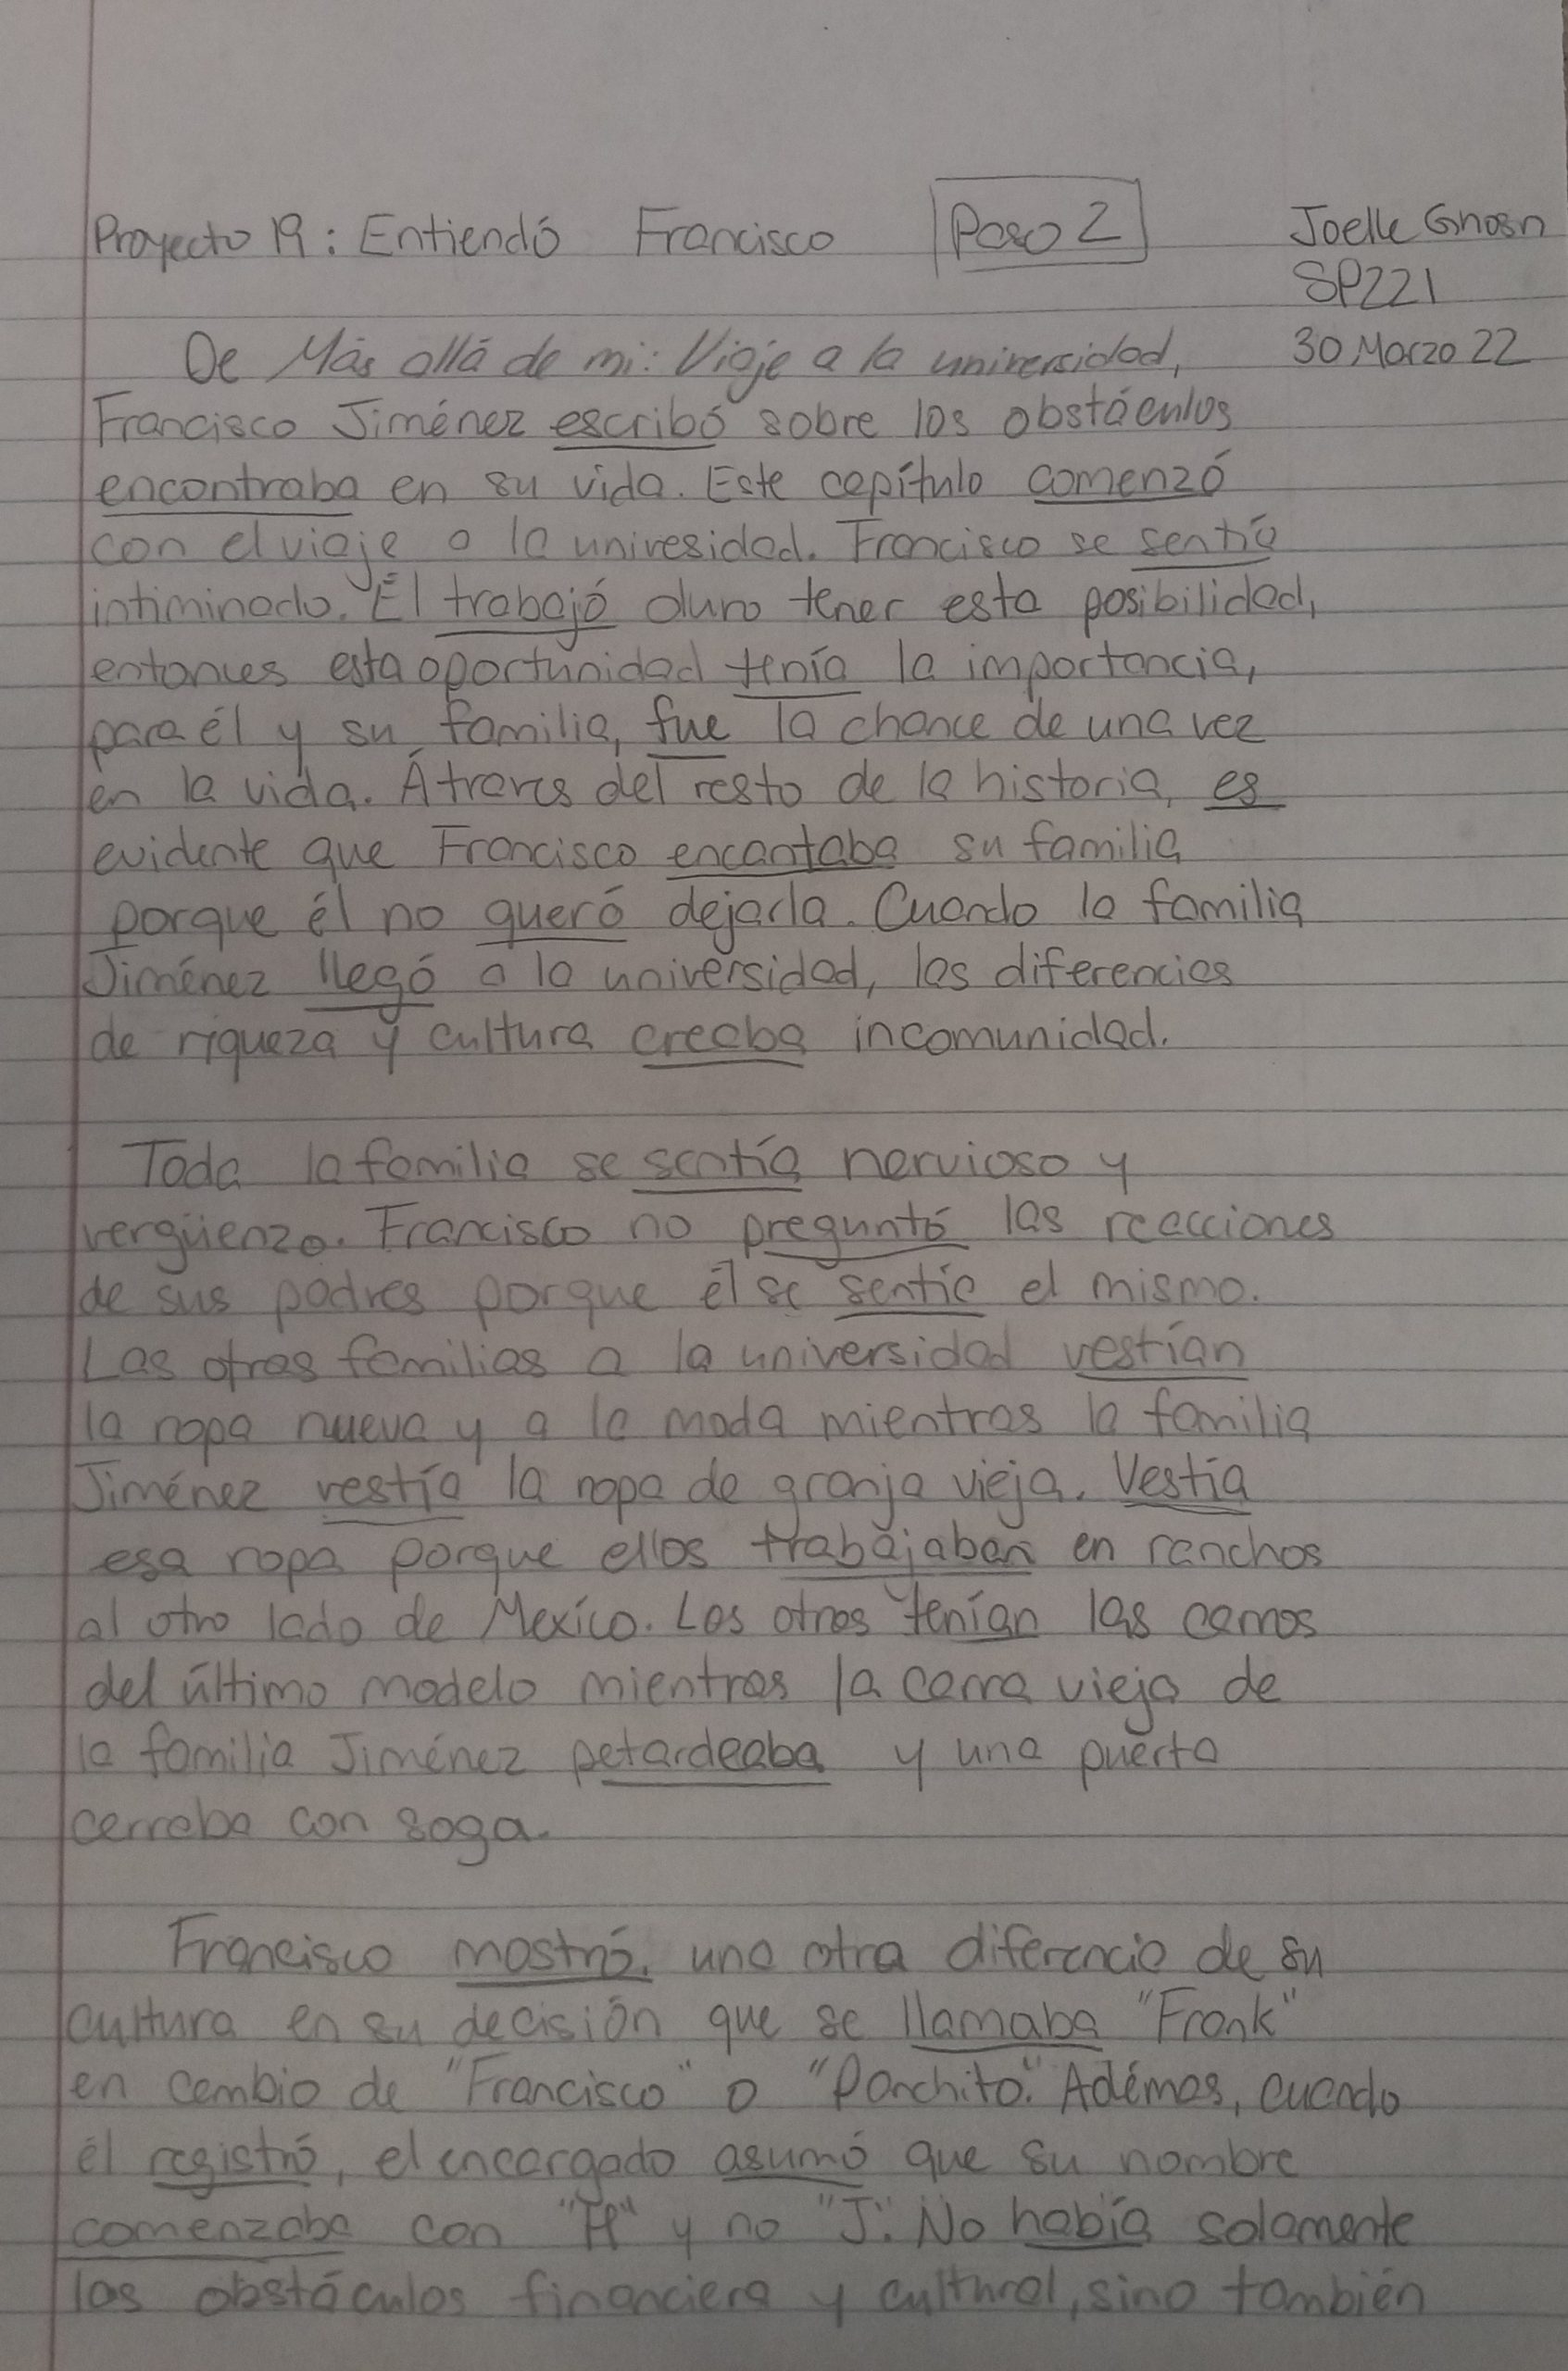 Proyecto 19: Entiendó Francisco Paso 2 Joelle Gnosn
SP221
De Más allá de mi: Viaje a la universidad, 30 Marzo 22
Francisco Jiménez escribó sobre los obstáculos
encontraba en su vida. Este capítulo comenzó
con el viaje a la univesidad. Francisco se sentía
intiminado. Él trabajó duro tener esta posibilidad,
entonces esta oportunidad tenía la importancia,
para él y su familia, fue la chance de una vez
en la vida. Átraves del resto de la historia, es
evidente que Francisco encantaba su familia
porque él no queró dejarla. Cuando la familia
Jiménez llegó a la universidad, las diferencias
de riqueza y cultura creaba incomunidad.
Toda la familia se sentía nervioso y
vergüenza. Francisco no preguntó las reacciones
de sus padres porque él se sentía el mismo.
Las otras familias a la universidad vestían
la ropa nueva y a la moda mientras la familia
Jiménez vestía la ropa de granja vieja. Vestía
esa ropa porque ellos trabajaban en ranchos
al otro lado de Mexíco. Los otros tenían las carros
del último modelo mientras la carra vieja de
la familia Jiménez petardeaba y una puerta
cerraba con soga.
Francisco mostró una otra diferencia de su
cultura en su decisión que se llamaba "Frank"
en cambio de "Francisco" o "Panchito." Adémas, cuando
él registró, el encargado asumó que su nombre
comenzaba con "H" y no "J". No había solamente
los obstáculos financiera y cultural, sino también